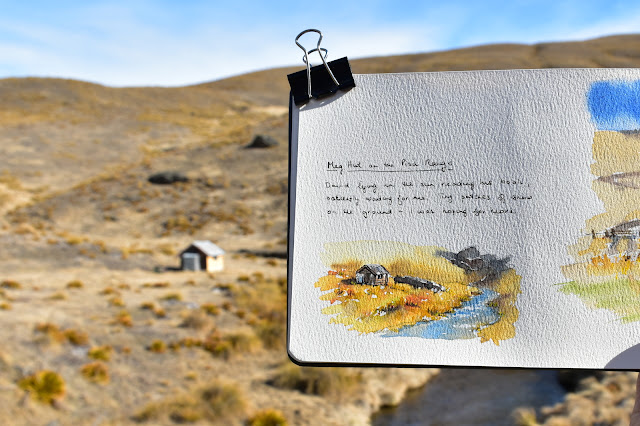 Meg Hut on the Pisa Range
David lying in the sun reading his book,
patiently waiting for me. Tiny patches of snow
on the ground - I was hoping for more!